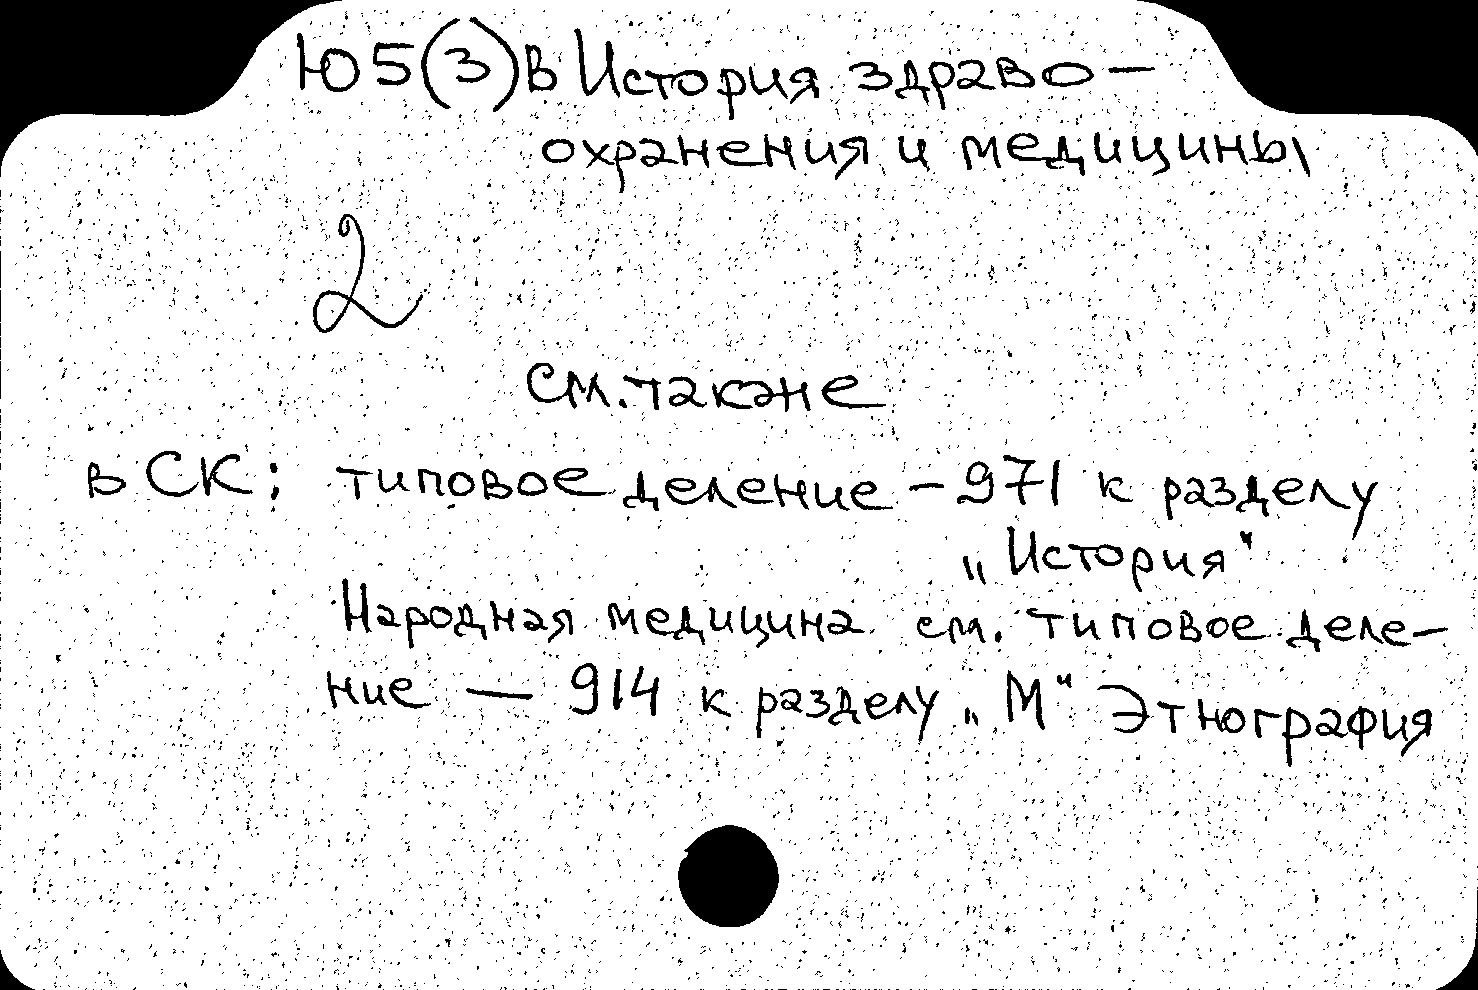 Ю5(3)в История здраво-
охранения и медицины
2
см. также
в СК: типовое деление - 971 к разделу
„История"
Народная медицина см. типовое деле-
ние — 914 к разделу „М" Этнография